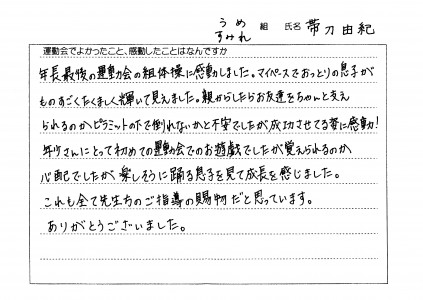 うめ
すみれ 組 氏名 帯刀由紀
運動会でよかったこと、感動したことはなんですか
年長最後の運動会の組体操に感動しました。マイペースでおっとりの息子が
ものすごくたくましく輝いて見えました。親からしたらお友達をちゃんと支え
られるのかピラミットの下で倒れないかと不安でしたが成功させてる姿に感動!
年少さんにとって初めての運動会でのお遊戯でしたが覚えられるのか
心配でしたが楽しそうに踊る息子を見て成長を感じました。
これも全て先生方のご指導の賜物だと思っています。
ありがとうございました。